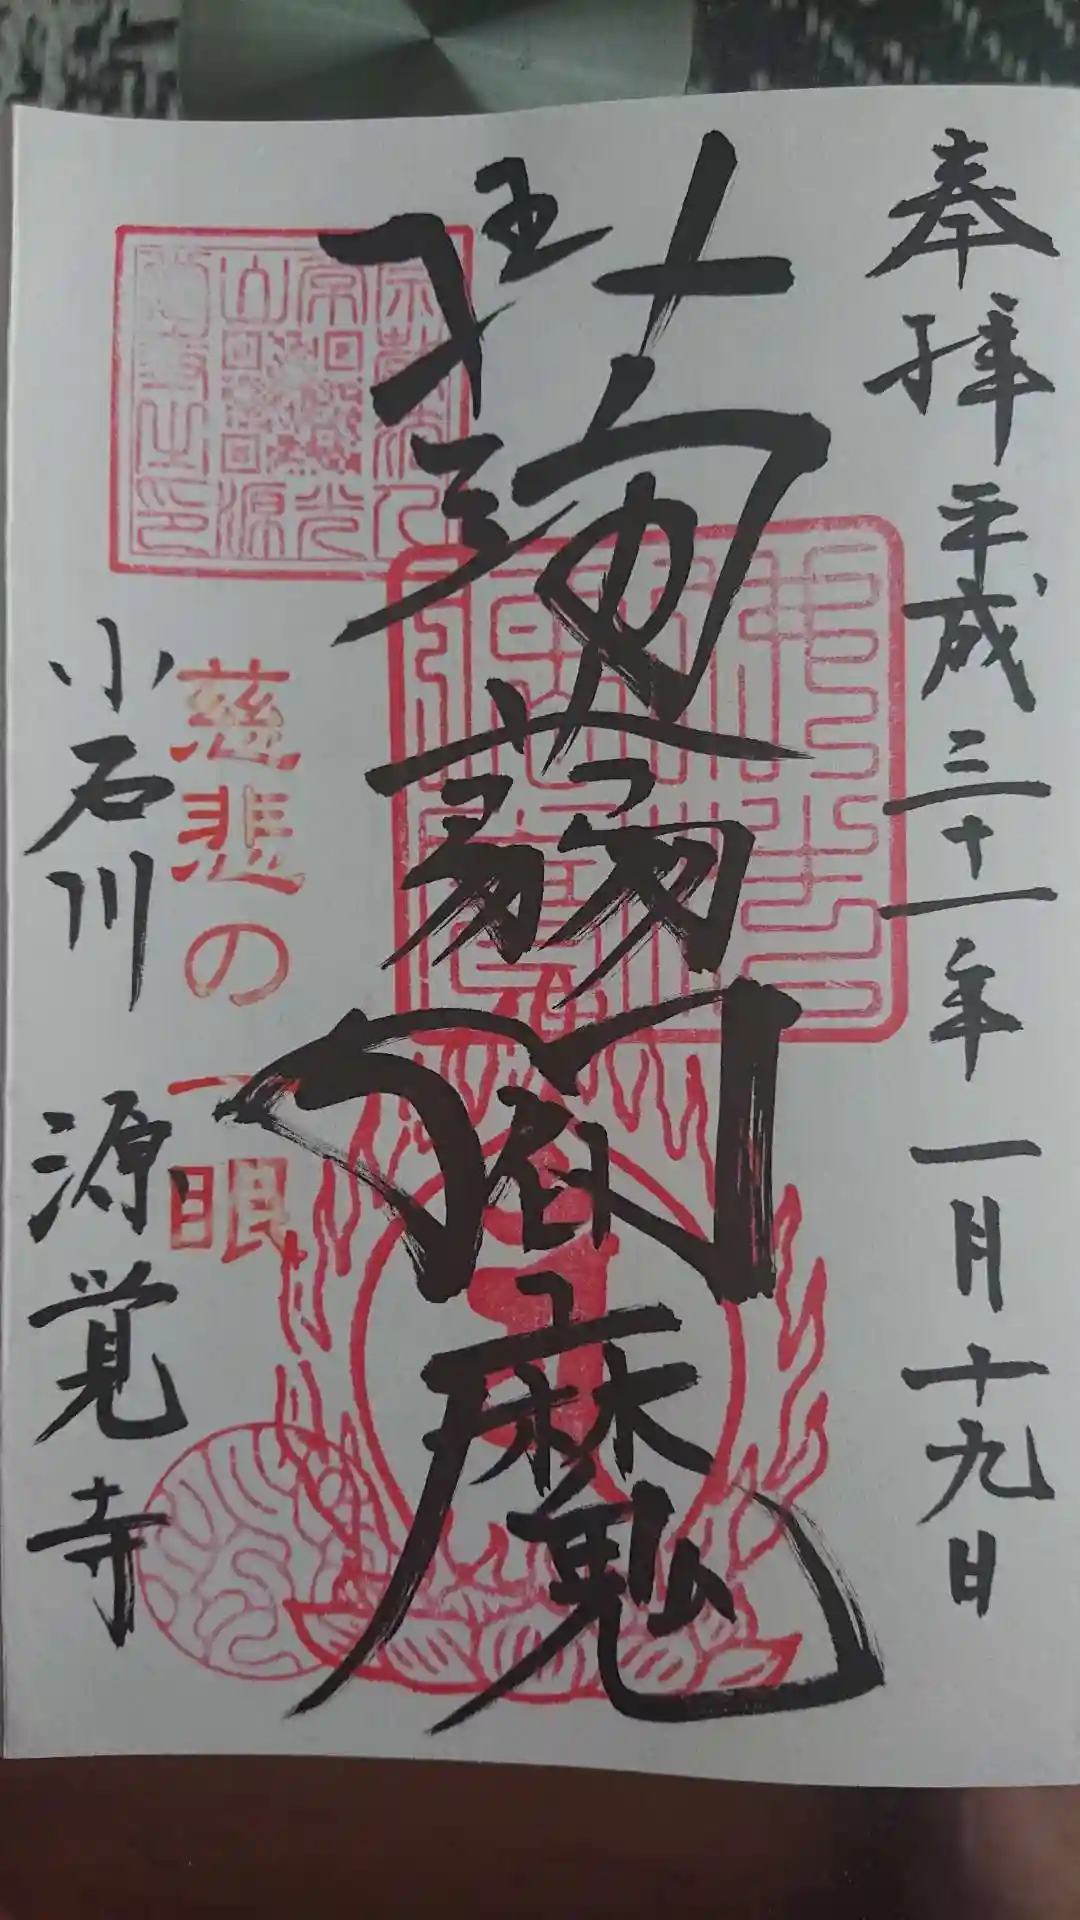 奉拝 平成三十一年 一月十九日
蒟蒻閻魔
慈悲の一眼
小石川 源覚寺